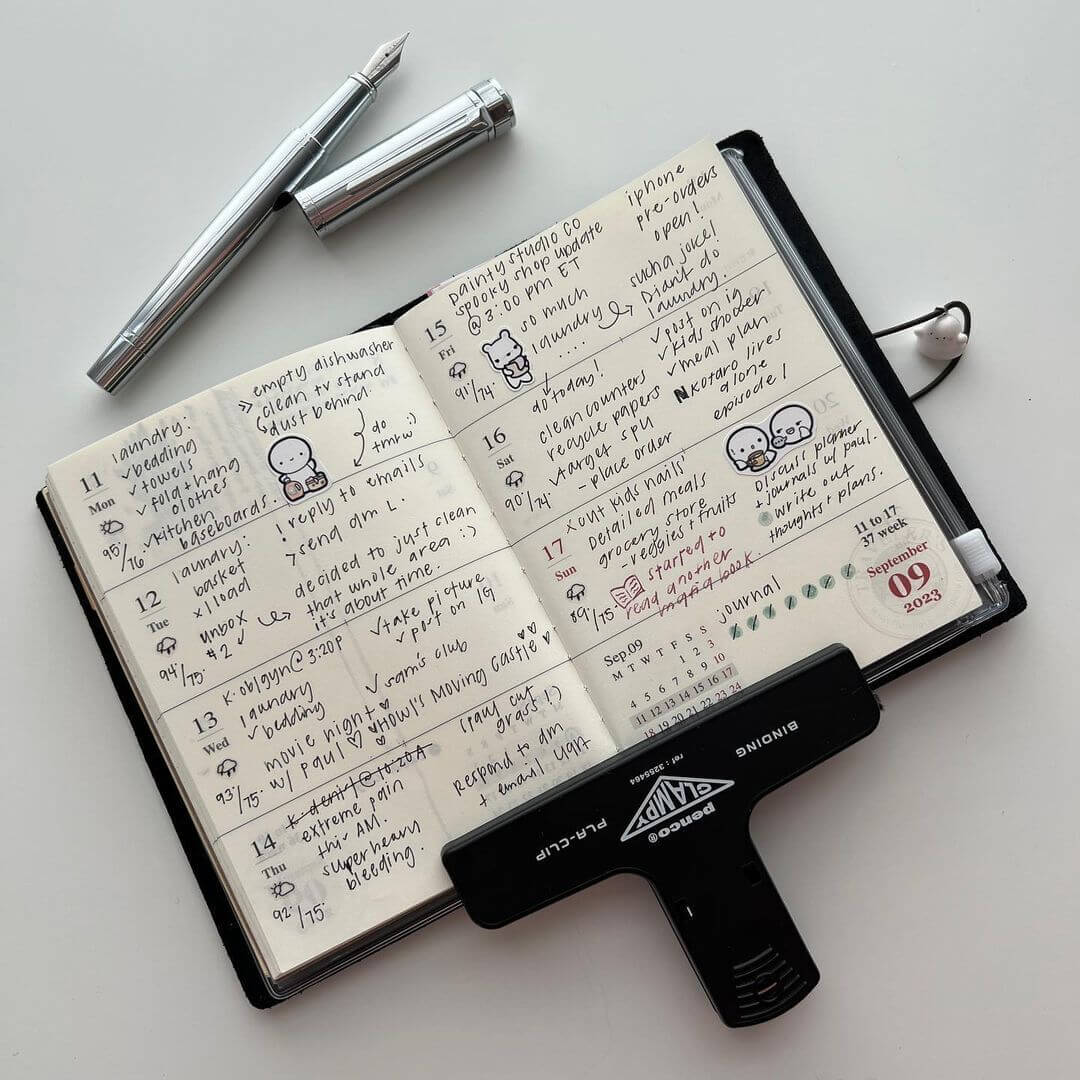 11
Mon
95°/76°
laundry:
✓bedding
✓towels
✓fold + hang
clothes
✓kitchen
baseboards.
empty dishwasher
clean tv stand
dust behind
do
tmrw :)
12
Tue
94°/75°
laundry:
basket
x1 load
unbox
#2
! reply to emails
>send dm L.
decided to just clean
that whole area :)
it's about time.
13
Wed
93°/75°
K. obgyn @ 3:20P
laundry
✓bedding
✓take picture
✓post on IG
✓sam's club
movie night ♡
w/ paul ♡ ♡Howl's Moving Castle♡
14
Thu
92°/75°
K. dent @ 10:20A
extreme pain
this AM.
super heavy
bleeding.
(paul cut
grass!)
respond to dm
+ email
15
Fri
91°/74°
Dainty Studio Co
spooky shop update
@ 3:00 PM ET
so much
laundry
....
iphone
pre-orders
open!
sucha joke!
Didn't do
laundry.
16
Sat
90°/74°
do today!
clean counters
recycle papers
✓target spu
-place order
✓post on ig
✓kids shower
✓meal plan
N Kotaro lives
alone
episode 1
17
Sun
89°/75°
x cut kids nails'
Detailed meals
grocery store
-veggies + fruits
started to
read another
book.
Discuss planner
+ journals w/ paul.
write out
thoughts + plans.
journal
11 to 17
37 week
September
09
2023
Sep.09
M T W T F S S
1 2 3
4 5 6 7 8 9 10
11 12 13 14 15 16 17
18 19 20 21 22 23 24
BINDING
ref : 3255464
penco®
CLAMPY
PLA-CLIP